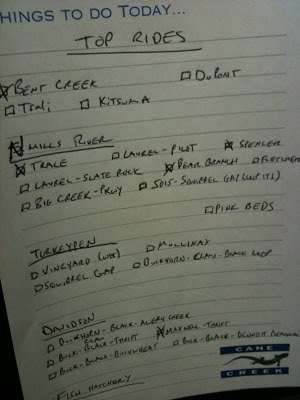 THINGS TO DO TODAY...
TOP RIDES
BENT CREEK DUPONT
TSALI KITSUMA
MILLS RIVER
TRACE LAUREL-PILOT SPENCER
LAUREL-SLATE ROCK BEAR BRANCH FLETCHER
BIG CREEK-PRWY 5015-SQUIRREL GAP
PINK BEDS
TURKEYPEN MULLINAX
VINEYARD
SQUIRREL GAP BUCKHORN-CLAW-BLACK LOOP
DAVIDSON
BUCKHORN-BLACK-AVERY CREEK
CLAW
BUCK-BLACK-THRIFT MAXWELL-THRIFT
BUCK-BLACK-BUCKWHEAT BUCK-BLACK-BENNETT
FISH HATCHERY
CANE
CREEK